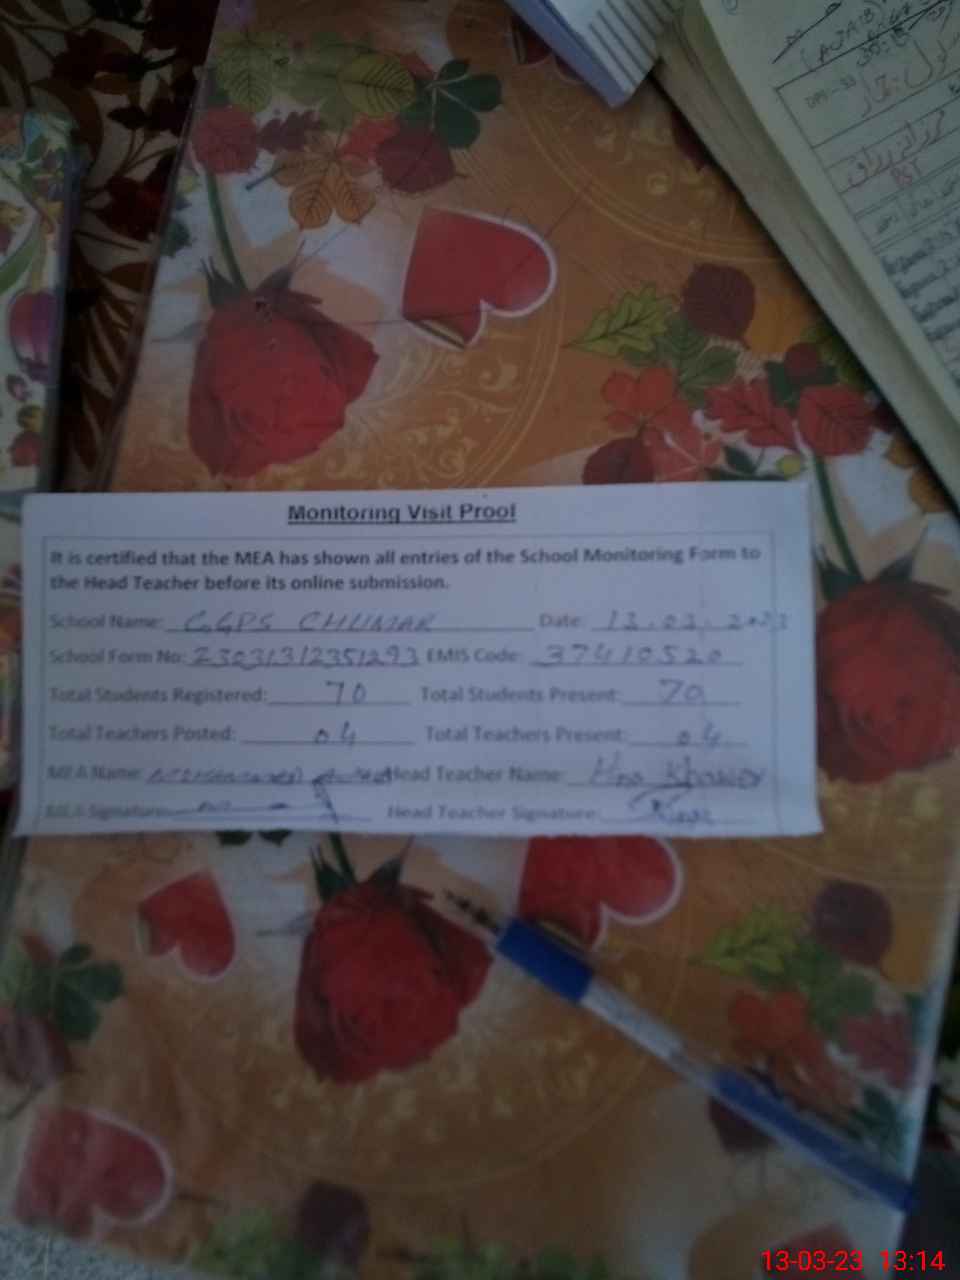 PST
Monitoring Visit Proof
It is certified that the MEA has shown all entries of the School Monitoring Form to
the Head Teacher before its online submission.
School Name: GGPS CHUMAR Date: 13.03.2023
School Form No: 23031312351293 EMIS Code: 37410520
Total Students Registered: 70 Total Students Present: 70
Total Teachers Posted: 04 Total Teachers Present: 04
MEA Name: Head Teacher Name:
MEA Signature: Head Teacher Signature:
13-03-23 13:14